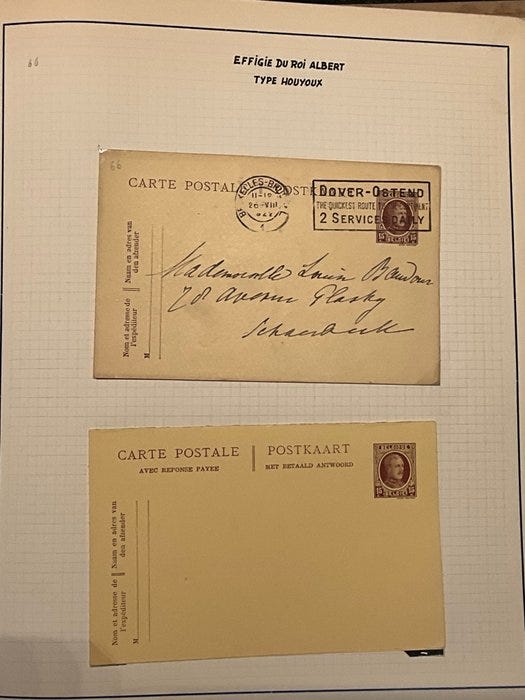 66
EFFIGIE DU ROI ALBERT
TYPE HOUYOUX
66
CARTE POSTALE
11-12
26-VIII
1
DOVER-OSTEND
THE QUICKEST ROUTE TO
2 SERVICES DAILY
15 BELGIE 15
Nom et adresse de l'expéditeur
Naam en adres van den afzender
M
Mademoiselle
28 Avenue Plasky
Schaerbeek
CARTE POSTALE
AVEC REPONSE PAYEE
POSTKAART
MET BETAALD ANTWOORD
BELGIQUE
15 BELGIE 15
Nom et adresse de l'expéditeur
Naam en adres van den afzender
M